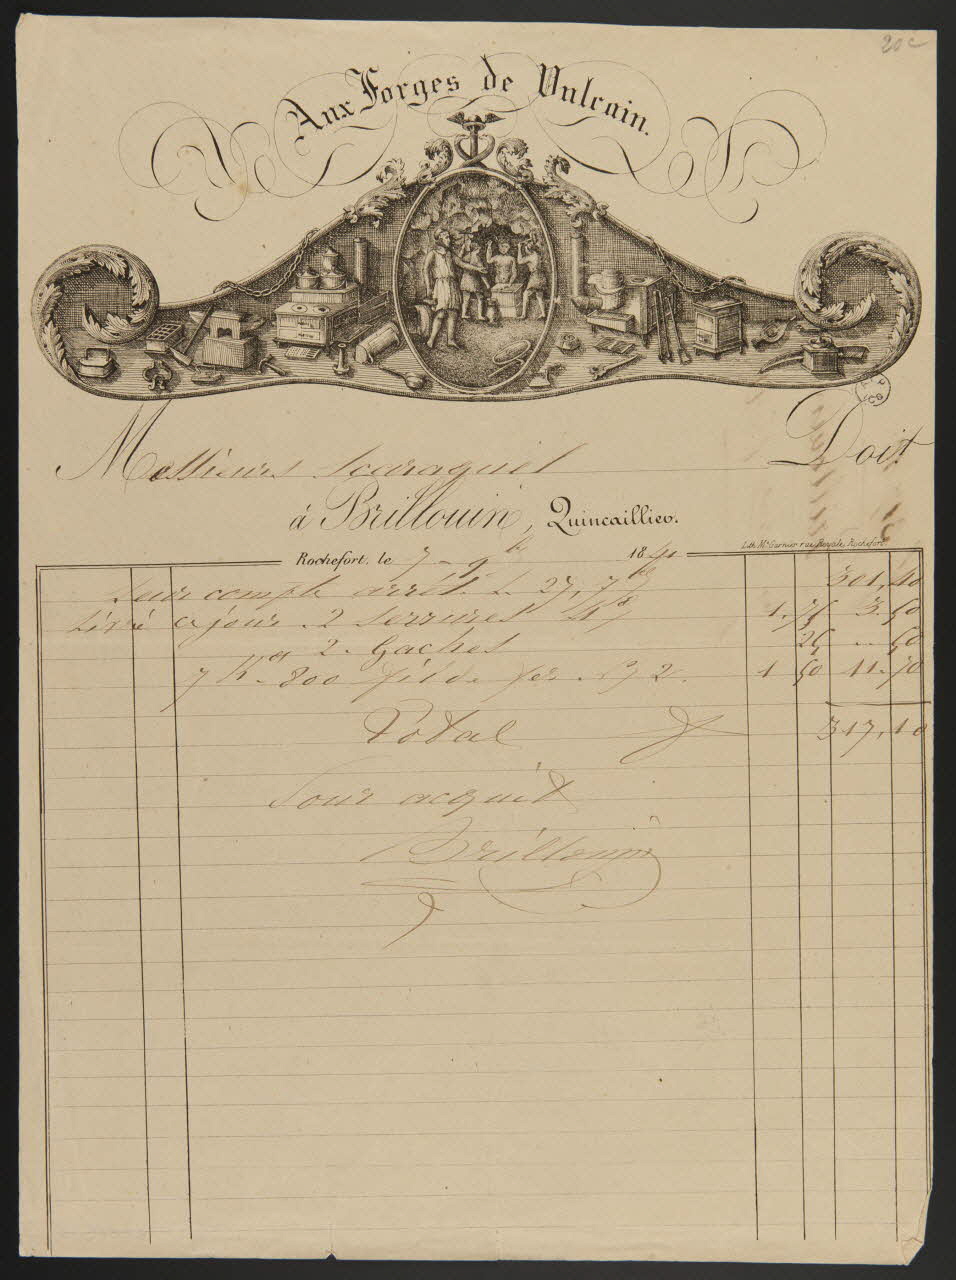 20c
Aux Forges de Vulcain.
Messieurs Doit
à Brillouin, Quincaillier.
Lith. Me Garnier rue Royale, Rochefort
Rochefort, le 7 - 9bre 184
Leur compte arrêté le 27, 7bre 301,40
Livré ce jour 2 serrures 1.75 3.50
2 Gaches 25 .. 50
7 K. 800 fil de fer No 2. 1 50 11.70
Total 317,10
Pour acquit
Brillouin